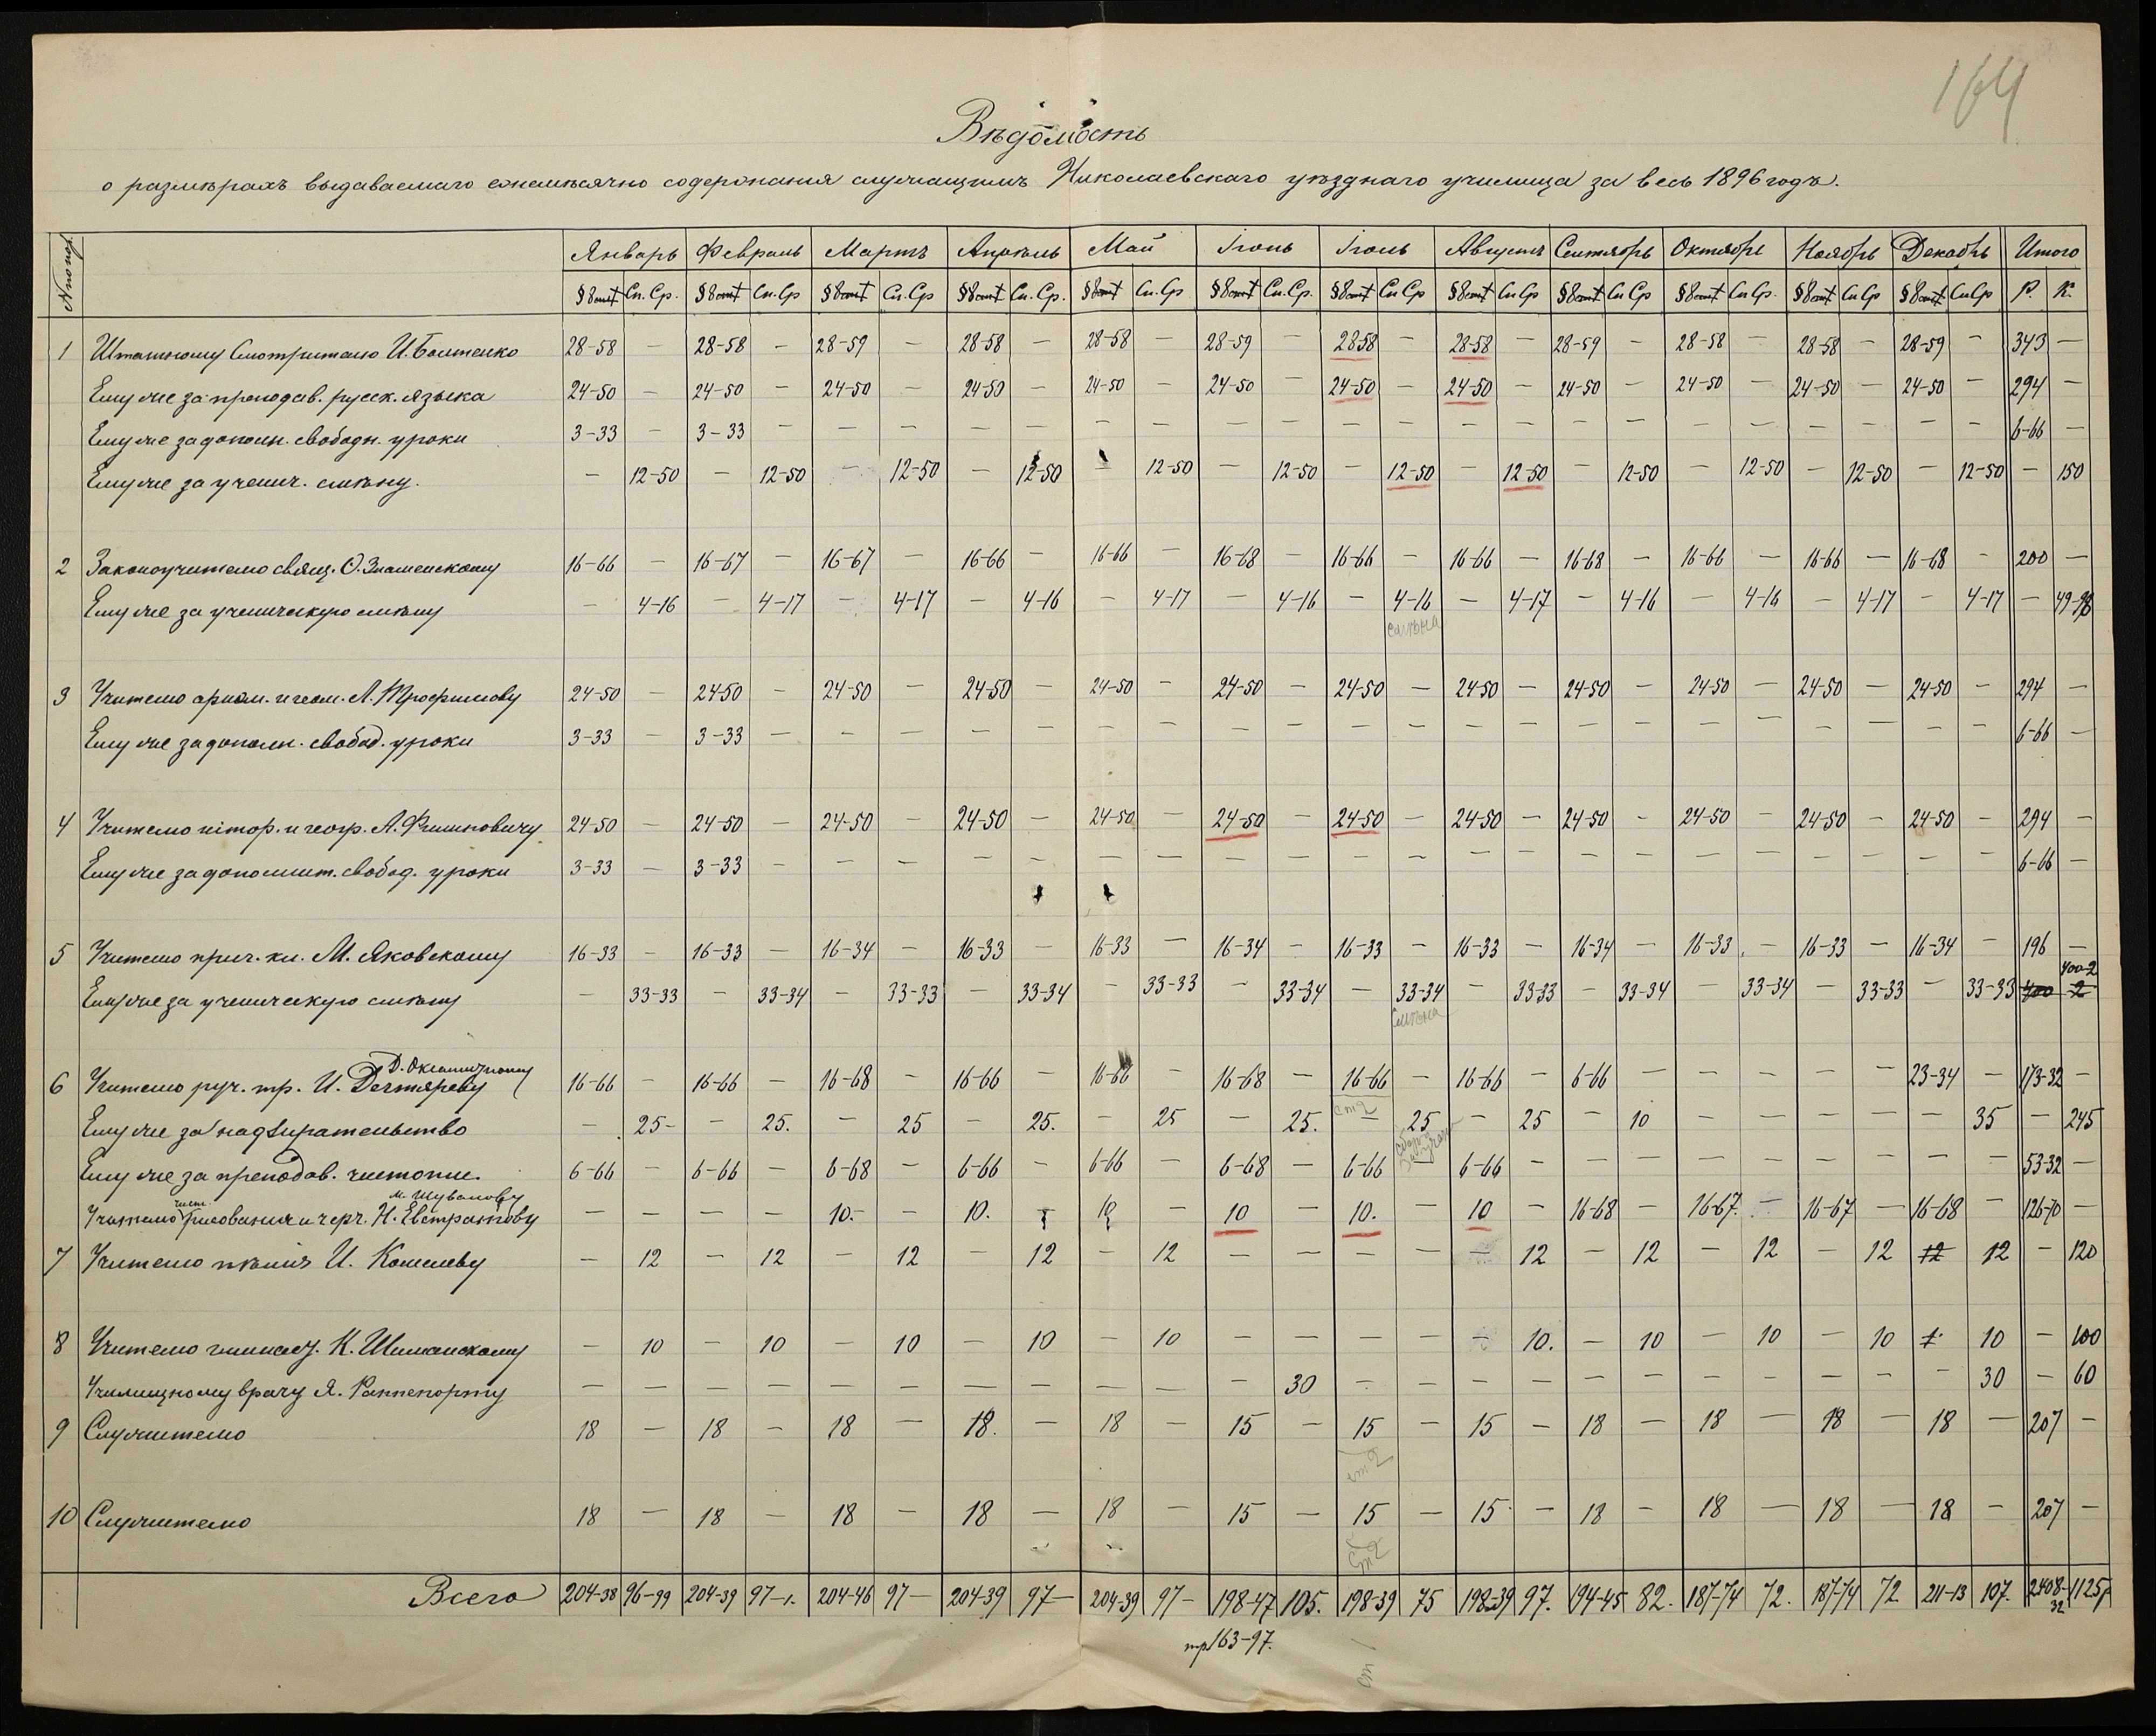 164
Вѣдомость
о размѣрахъ выдаваемаго ежемѣсячно содержанія служащимъ Николаевскаго уѣзднаго училища за весь 1896 годъ.
Январь Февраль Мартъ Апрѣль Май Іюнь Іюль Августъ Сентябрь Октябрь Ноябрь Декабрь Итого
§8 Сп. Ср. §8 Сп. Ср §8 Сп. Ср §8 Сп. Ср. §8 Сп. Ср §8 Сп. Ср. §8 Сп Ср §8 Сп Ср §8 Сп Ср §8 Сп Ср. §8 Сп Ср §8 Сп Ср Р. К.
1 Штатному Смотрителю И. Болтенко 28-58 — 28-58 — 28-59 — 28-58 — 28-58 — 28-59 — 28 58 — 28-58 — 28-59 — 28-58 — 28-58 — 28-59 — 343 —
Ему же за преподав. русск. языка 24-50 — 24-50 — 24-50 — 24-50 — 24-50 — 24-50 — 24-50 — 24-50 — 24-50 — 24-50 — 24-50 — 24-50 — 294 —
Ему же за дополн. свободн. уроки 3-33 — 3-33 — — — — — — — — — — — — — — — — — — — — — 6-66 —
Ему же за ученич. смѣну. — 12-50 — 12-50 — 12-50 — 12-50 — 12-50 — 12-50 — 12-50 — 12-50 — 12-50 — 12-50 — 12-50 — 12-50 — 150
2 Законоучителю свящ. О. Знаменскому 16-66 — 16-67 — 16-67 — 16-66 — 16-66 — 16-68 — 16-66 — 16-66 — 16-68 — 16-66 — 16-66 — 16-68 — 200 —
Ему же за ученическую смѣну — 4-16 — 4-17 — 4-17 — 4-16 — 4-17 — 4-16 — 4-16 — 4-17 — 4-16 — 4-16 — 4-17 — 4-17 — 49-98
смѣна
3 Учителю ариѳм. и геом. Л. Трофимову 24-50 — 24 50 — 24-50 — 24-50 — 24-50 — 24-50 — 24-50 — 24-50 — 24-50 — 24-50 — 24-50 — 24-50 — 294 —
Ему же за дополн. свобод. уроки 3-33 — 3-33 — — — — — — — — — — — — — — — — — — — — — 6-66 —
4 Учителю істор. и геогр. А. 24-50 — 24-50 — 24-50 — 24-50 — 24-50 — 24-50 — 24-50 — 24-50 — 24-50 — 24-50 — 24-50 — 24-50 — 294 —
Ему же за дополнит. свобод. уроки 3-33 — 3-33 — — — — — — — — — — — — — — — — — — — — — 6-66 —
5 Учителю приг. кл. М. Яковскому 16-33 — 16-33 — 16-34 — 16-33 — 16-33 — 16-34 — 16-33 — 16-33 — 16-34 — 16-33 — 16-33 — 16-34 — 196 —
400-2
Ему же за ученическую смѣну — 33-33 — 33-34 — 33-33 — 33-34 — 33-33 — 33-34 — 33-34 — 33 33 — 33-34 — 33-34 — 33-33 — 33-33 400 2
Смѣна
6 Учителю руч. тр. И. Дегтяреву 16-66 — 16-66 — 16-68 — 16-66 — 16-66 — 16-68 — 16-66 — 16-66 — 6-66 — — — — — 23-34 — 173-32 —
ст 2
Ему же за надзирательство — 25- — 25. — 25 — 25. — 25 — 25. — 25 — 25 — 10 — — — — — 35 — 245
Ему же за преподав. чистопис. 6-66 — 6-66 — 6-68 — 6-66 — 6-66 — 6-68 — 6-66 — 6-66 — — — — — — — — — 53-32 —
м. Шувалову
чист.
Учителю рисованія и черч. Н. Евстратову — — — — 10.- — 10. — 10 — 10 — 10. — 10 — 16-68 — 16-67. — 16-67 — 16-68 — 126-70 —
7 Учителю пѣнія И. Кошелеву — 12 — 12 — 12 — 12 — 12 — — — — — 12 — 12 — 12 — 12 12 12 — 120
8 Учителю гимнаст. К. Шиманскому — 10 — 10 — 10 — 10 — 10 — — — — — 10. — 10 — 10 — 10 1. 10 — 100
Училищному врачу Я. Раппепорту — — — — — — — — — — — 30 — — — — — — — — — — — 30 — 60
9 Служителю 18 — 18 — 18 — 18. — 18 — 15 — 15 — 15 — 18 — 18 — 18 — 18 — 207 —
ст 2
10 Служителю 18 — 18 — 18 — 18 — 18 — 15 — 15 — 15 — 18 — 18 — 18 — 18 — 207 —
Ст 2
Всего 204-38 96-99 204-39 97-1. 204-46 97— 204-39 97— 204-39 97- 198-47 105. 198-39 75 198-39 97. 194-45 82. 187-74 72. 187-74 72. 211-13 107. 2408-32 1125
163-97.
ст 1